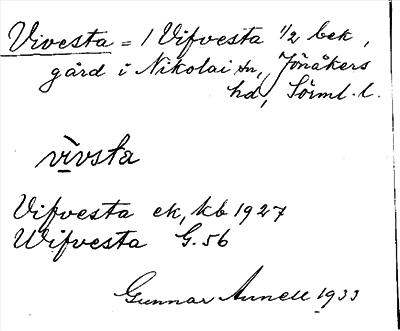 Vivesta = 1 Vifvesta 1/2 bek,
gård i Nikolai sn, Jönåkers
hd, Sörml. l.
vivsta
Vifvesta ek, kb 1927
Wifvesta G. 56
Gunnar Annell 1933